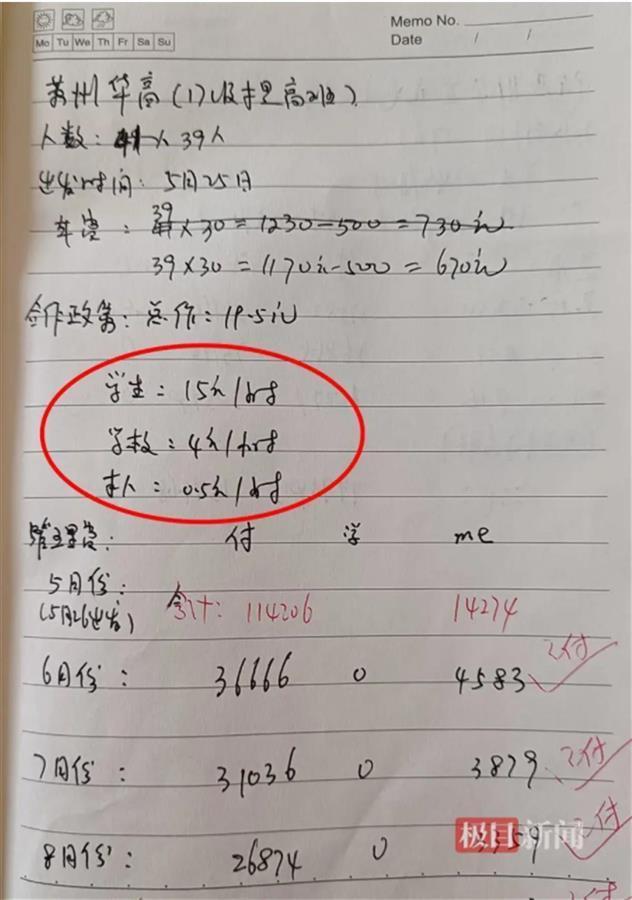 Memo No.
Mo Tu We Th Fr Sa Su
Date / /
苏州华高(17级提高班)
人数: 41人 39人
出发时间: 5月25日
车费: 39 41×30=1230-500=730元
39×30=1170元-500=670元
合作政策: 总价: 19.5元
学生: 15元/小时
学校: 4元/小时
本人: 0.5元/小时
管理费: 付 学 me
5月份:
(5月26出发) 合计: 114206 14274
6月份: 36666 0 4583 已付
7月份: 31036 0 3879 已付
极目新闻
8月份: 26874 0 3359 已付